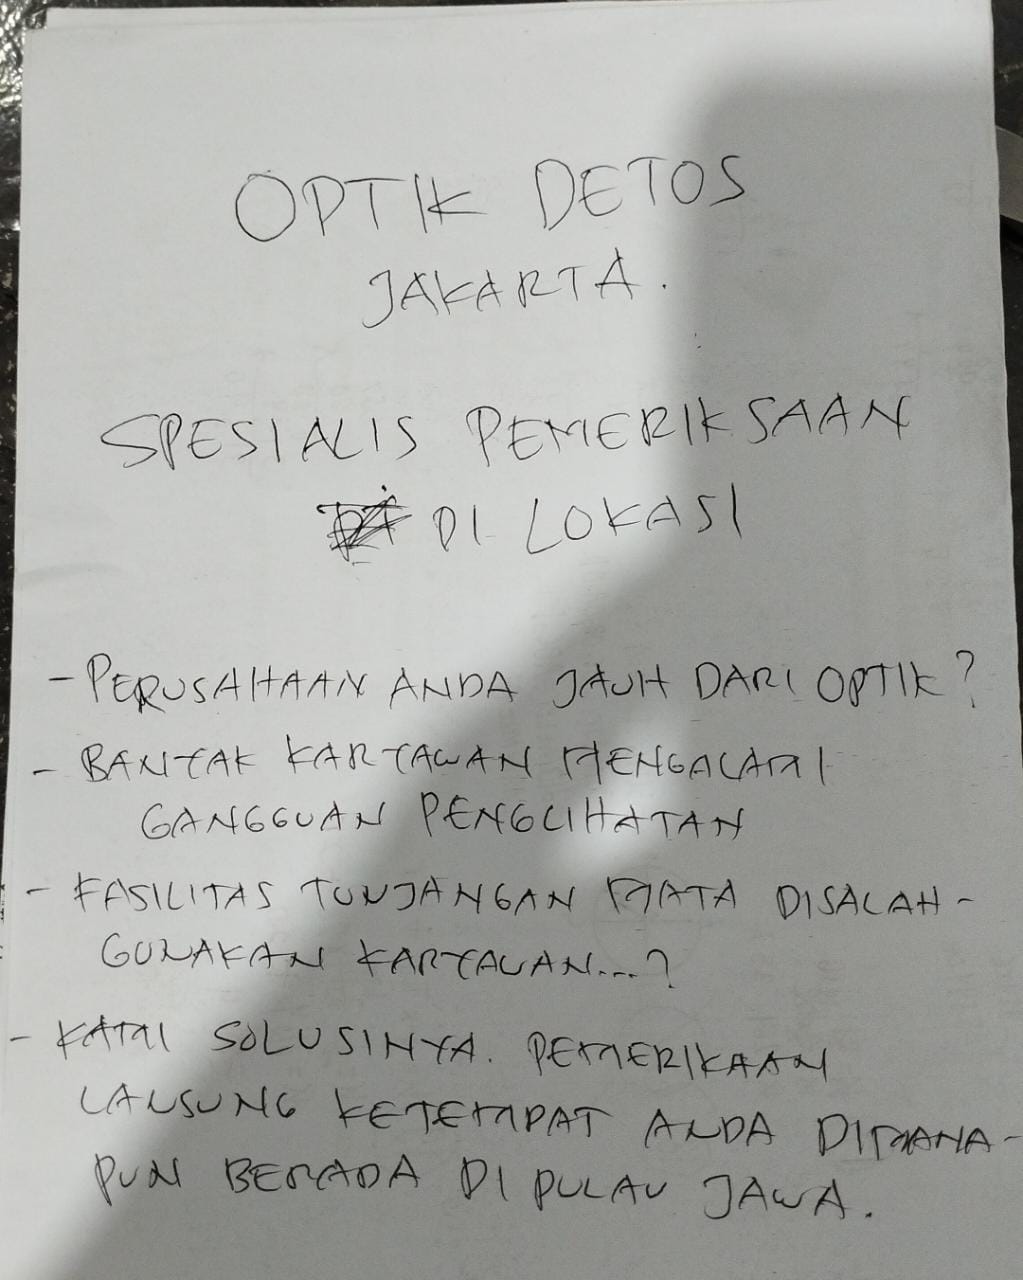 OPTIK DETOS
JAKARTA.
SPESIALIS PEMERIKSAAN
DI LOKASI
- PERUSAHAAN ANDA JAUH DARI OPTIK?
- BANYAK KARYAWAN MENGALAMI
GANGGUAN PENGLIHATAN
- FASILITAS TUNJANGAN MATA DISALAH-
GUNAKAN KARYAWAN...?
- KAMI SOLUSINYA. PEMERIKAAN
LANSUNG KETEMPAT ANDA DIMANA-
PUN BERADA DI PULAU JAWA.